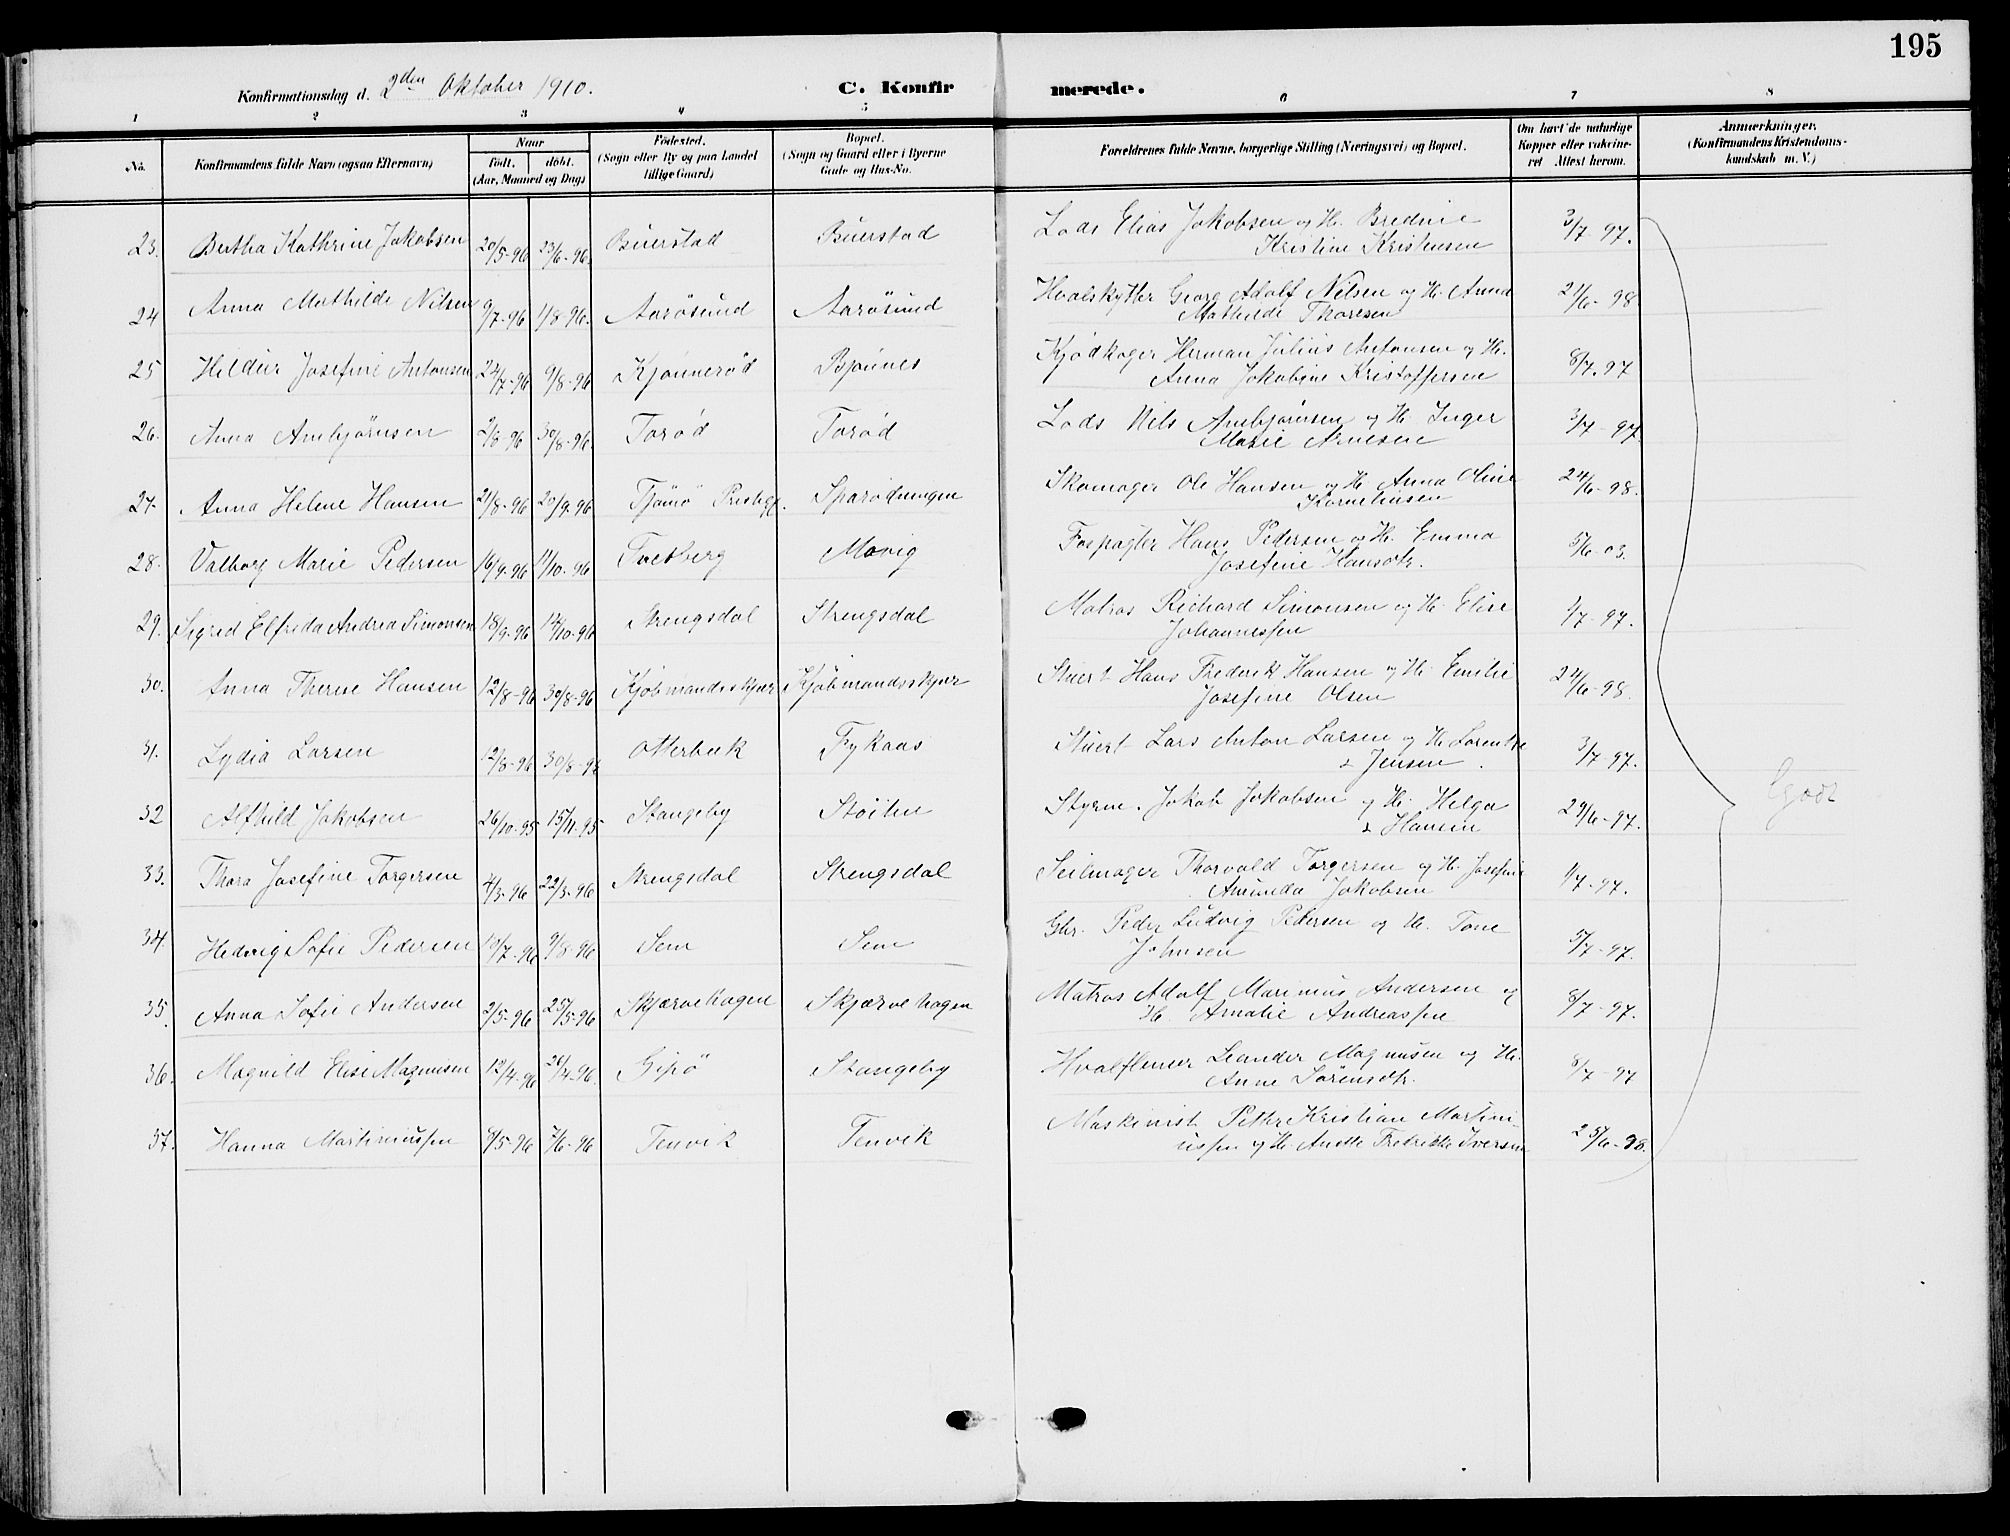 195
Konfirmationsdag d. 2den Oktober 1910.
C. Konfirmerede.
1 2 3 4 5 6 7 8
No. Konfirmandens fulde Navn (ogsaa Efternavn) Naar født. døbt. (Aar, Maaned og Dag) Fødested. (Sogn eller By og paa Landet tillige Gaard) Bopæl. (Sogn og Gaard eller i Byerne Gade og Hus-No. Forældrenes fulde Navne, borgerlige Stilling (Næringsvei) og Bopæl. Om havt de naturlige Kopper eller vakcineret Attest herom. Anmærkninger. (Konfirmandens Kristendomskundskab m. V.)
23. Bertha Kathrine Jakobsen 20/5-96 23/6-96. Buerstad Buerstad Lods Elias Jakobsen og H. Bredine 3/7-97.
Kristine Kristensen
24 Anna Mathilde Nilsen 9/7-96 1/8-96. Aarøsund Aarøsund Hvalskytter Georg Adolf Nilsen og H. Anna 21/6-98
Mathilde Thoresen
25 Hildur Josefine Antonsen 24/7-96 9/8-96 Kjønnerød Bjønnes Kjødkoger Herman Julius Antonsen og H. 8/7.97
Anna Jakobine Kristoffersen
26. Anna Arnbjørnsen 2/8-96 30/8-96. Torød Torød Lods Nils Arnbjørnsen og H. Inger 3/7-97.
Marie Arnesen
27. Anna Helene Hansen 21/8-96 20/9-96 Tjømø Prestegj. Sparødningen Skomager Ole Hansen og H. Anna Oline 24/6-98.
Korneliusen
28. Valborg Marie Pedersen 16/9-96 11/10-96 Tvetberg Movig Hans Pedersen og H. Emma 5/6-03.
Josefine Hansdtr.
29. Sigrid Elfrida Andrea Simonsen 18/9-96 18/10-96 Strengsdal Strengsdal Matros Richard Simonsen og H. Elise 1/7-97.
Johannessen
30. Anna Therese Hansen 12/8-96 30/8-96 Kjøbmandsskjær Kjøbmandsskjær Stuert Hans Frederik Hansen og H. Emilie 24/6-98.
Josefine Olsen
31. Lydia Larsen 12/8-96 30/8-96 Otterbæk Fykaas Stuert Lars Anton Larsen og H. Lorentze 3/7-97.
Jensen
32 Alfhild Jakobsen 26/10-95 15/11-95 Stangeby Støiten Styrm. Jakob Jakobsen og H. Helga 29/6-97. Godt
Hansen
33. Thora Josefine Torgersen 4/3-96 22/3-96 Strengsdal Strengsdal Seilmager Thorvald Torgersen og H. Josefine 1/7-97.
Amunda Jakobsen
34. Hedvig Sofie Pedersen 10/7-96 9/8-96 Sem Sem Gbr. Peder Ludvig Pedersen og H. Tone 5/7-97.
Johnsen
35. Anna Sofie Andersen 2/5-96 25/5-96 Skjærvehagen Skjærvehagen Matros Adolf Marinius Andersen og 8/7-97.
H. Amalie Andreassen
36. Magnild Elise Magnusen 12/4-96 26/4-96. Gipø Stangeby Hvalflenser Leander Magnusen og H. 8/7-97
Anne Sørensdtr.
37. Hanna Martiniussen 8/5-96 7/6-96 Tenvik Tenvik Maskinist Pethr Kristian Martini-
ussen og H. Anette Fredrikke Iversen 25/6-98.